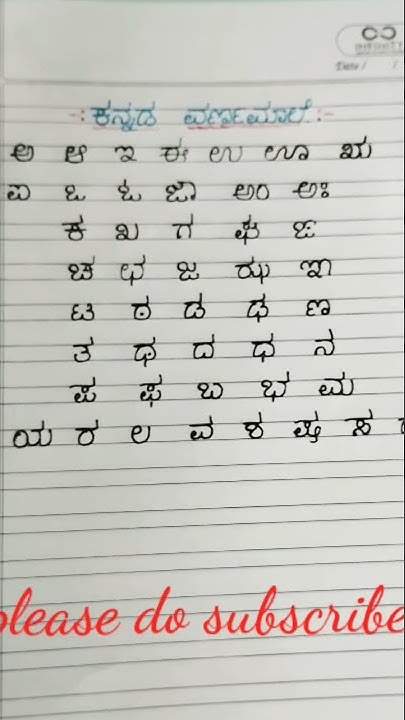 INFINITY
Date / /
-: ಕನ್ನಡ ವರ್ಣಮಾಲೆ :-
ಅ ಆ ಇ ಈ ಉ ಊ ಋ
ಎ ಏ ಒ ಓ ಔ ಅಂ ಅಃ
ಕ ಖ ಗ ಘ ಙ
ಚ ಛ ಜ ಝ ಞ
ಟ ಠ ಡ ಢ ಣ
ತ ಥ ದ ಧ ನ
ಪ ಫ ಬ ಭ ಮ
ಯ ರ ಲ ವ ಶ ಷ ಸ
please do subscribe